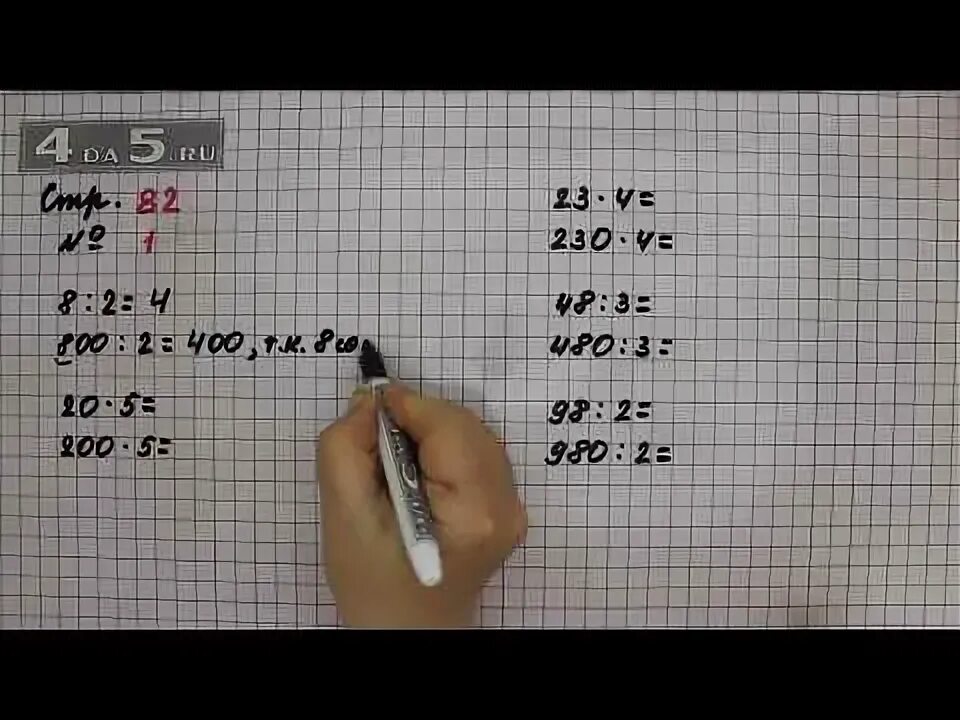 4 DA 5 .RU
Стр. 82
№ 1
8 : 2 = 4
800 : 2 = 400, т.к. 8 со
20 · 5 =
200 · 5 =
23 · 4 =
230 · 4 =
48 : 3 =
480 : 3 =
98 : 2 =
980 : 2 =